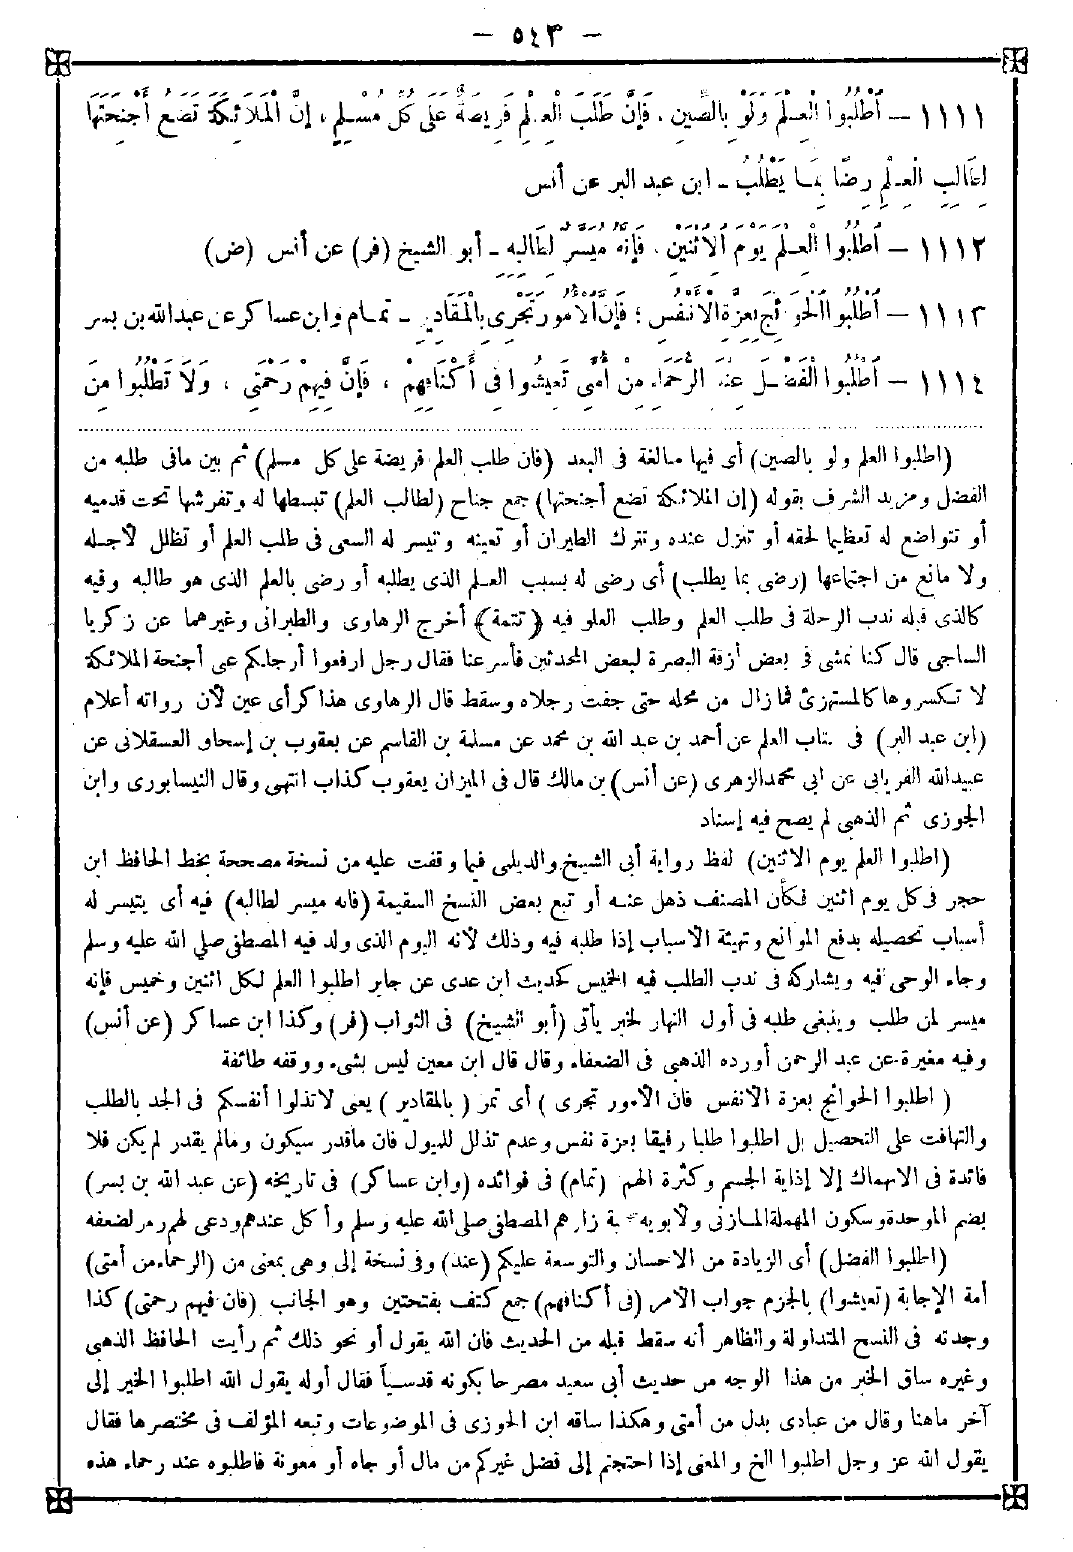 - ٥٤٣ -
١١١١ - أَطْلُبُوا الْعِلْمَ وَلَوْ بِالصِّينِ ، فَإِنَّ طَلَبَ الْعِلْمِ فَرِيضَةٌ عَلَى كُلِّ مُسْلِمٍ ، إِنَّ الْمَلَائِكَةَ تَضَعُ أَجْنِحَتَهَا
لِطَالِبِ الْعِلْمِ رِضًا بِمَا يَطْلُبُ - ابن عبد البر عن أنس
١١١٢ - أَطْلُبُوا الْعِلْمَ يَوْمَ الِاثْنَيْنِ ، فَإِنَّهُ مُيَسَّرٌ لِطَالِبِهِ - أبو الشيخ (فر) عن أنس (ض)
١١١٣ - أَطْلُبُوا الْحَوَائِجَ بِعِزَّةِ الْأَنْفُسِ ؛ فَإِنَّ الْأُمُورَ تَجْرِي بِالْمَقَادِيرِ - تمام وابن عساكر عن عبد الله بن بسر
١١١٤ - أَطْلُبُوا الْفَضْلَ عِنْدَ الرُّحَمَاءِ مِنْ أُمَّتِى تَعِيشُوا فِى أَكْنَافِهِمْ ، فَإِنَّ فِيهِمْ رَحْمَتِى ، وَلَا تَطْلُبُوا مِنَ
(اطلبوا العلم ولو بالصين) أى فيها مبالغة فى البعد (فان طلب العلم فريضة على كل مسلم) ثم بين مافى طلبه من
الفضل ومزيد الشرف بقوله (إن الملائكة تضع أجنحتها) جمع جناح (لطالب العلم) تبسطها له وتفرشها تحت قدميه
أو تتواضع له تعظيما لحقه أو تنزل عنده وتترك الطيران أو تعينه وتيسر له السعى فى طلب العلم أو تظلل لأجله
ولا مانع من اجتماعها (رضى بما يطلب) أى رضى له بسبب العلم الذى يطلبه أو رضى بالعلم الذى هو طالبه وفيه
كالذى قبله ندب الرحلة فى طلب العلم وطلب العلو فيه (تتمة) أخرج الرهاوى والطبرانى وغيرهما عن زكريا
الساجى قال كنا نمشى فى بعض أزقة البصرة لبعض المحدثين فأسرعنا فقال رجل ارفعوا أرجلكم عن أجنحة الملائكة
لا تكسروها كالمستهزئ فما زال من محله حتى جفت رجلاه وسقط قال الرهاوى هذا كرأى عين لأن رواته أعلام
(ابن عبد البر) فى كتاب العلم عن أحمد بن عبد الله بن محمد عن مسلمة بن القاسم عن يعقوب بن إسحاق العسقلانى عن
عبيد الله الفريابى عن أبى محمد الزهرى (عن أنس) بن مالك قال فى الميزان يعقوب كذاب انتهى وقال النيسابورى وابن
الجوزى ثم الذهبى لم يصح فيه إسناد
(اطلبوا العلم يوم الاثنين) لفظ رواية أبى الشيخ والديلمى فيما وقفت عليه من نسخة مصححة بخط الحافظ ابن
حجر فى كل يوم اثنين فكأن المصنف ذهل عنه أو تبع بعض النسخ السقيمة (فانه ميسر لطالبه) فيه أى يتيسر له
أسباب تحصيله بدفع الموانع وتهيئة الأسباب إذا طلبه فيه وذلك لأنه اليوم الذى ولد فيه المصطفى صلى الله عليه وسلم
وجاء الوحى فيه ويشاركه فى ندب الطلب فيه الخميس لحديث ابن عدى عن جابر اطلبوا العلم لكل اثنين وخميس فإنه
ميسر لمن طلب وينبغى طلبه فى أول النهار لخبر يأتى (أبو الشيخ) فى الثواب (فر) وكذا ابن عساكر (عن أنس)
وفيه مغيرة عن عبد الرحمن أورده الذهبى فى الضعفاء وقال قال ابن معين ليس بشىء ووقفه طائفة
(اطلبوا الحوائج بعزة الأنفس فان الأمور تجرى) أى تمر (بالمقادير) يعنى لا تذلوا أنفسكم فى الجد بالطلب
والتهافت على التحصيل بل اطلبوا طلبا رفيقا بعزة نفس وعدم تذلل للمسئول فان ما قدر سيكون ومالم يقدر لم يكن فلا
فائدة فى الانهماك إلا إذاية الجسم وكثرة الهم (تمام) فى فوائده (وابن عساكر) فى تاريخه (عن عبد الله بن بسر)
بضم الموحدة وسكون المهملة المازنى ولأبويه صحبة زارهم المصطفى صلى الله عليه وسلم وأكل عندهم ودعى لهم رمز لضعفه
(اطلبوا الفضل) أى الزيادة من الاحسان والتوسعة عليكم (عند) وفى نسخة إلى وهى بمعنى من (الرحماء من أمتى)
أمة الإجابة (تعيشوا) بالجزم جواب الأمر (فى أكنافهم) جمع كنف بفتحتين وهو الجانب (فان فيهم رحمتى) كذا
وجدته فى النسخ المتداولة والظاهر أنه سقط قبله من الحديث فان الله يقول أو نحو ذلك ثم رأيت الحافظ الذهبى
وغيره ساق الخبر من هذا الوجه من حديث أبى سعيد مصرحا بكونه قدسياً فقال أوله يقول الله اطلبوا الخير إلى
آخر ماهنا وقال من عبادى بدل من أمتى وهكذا ساقه ابن الجوزى فى الموضوعات وتبعه المؤلف فى مختصرها فقال
يقول الله عز وجل اطلبوا الخ والمعنى إذا احتجتم إلى فضل غيركم من مال أو جاه أو معونة فاطلبوه عند رحماء هذه